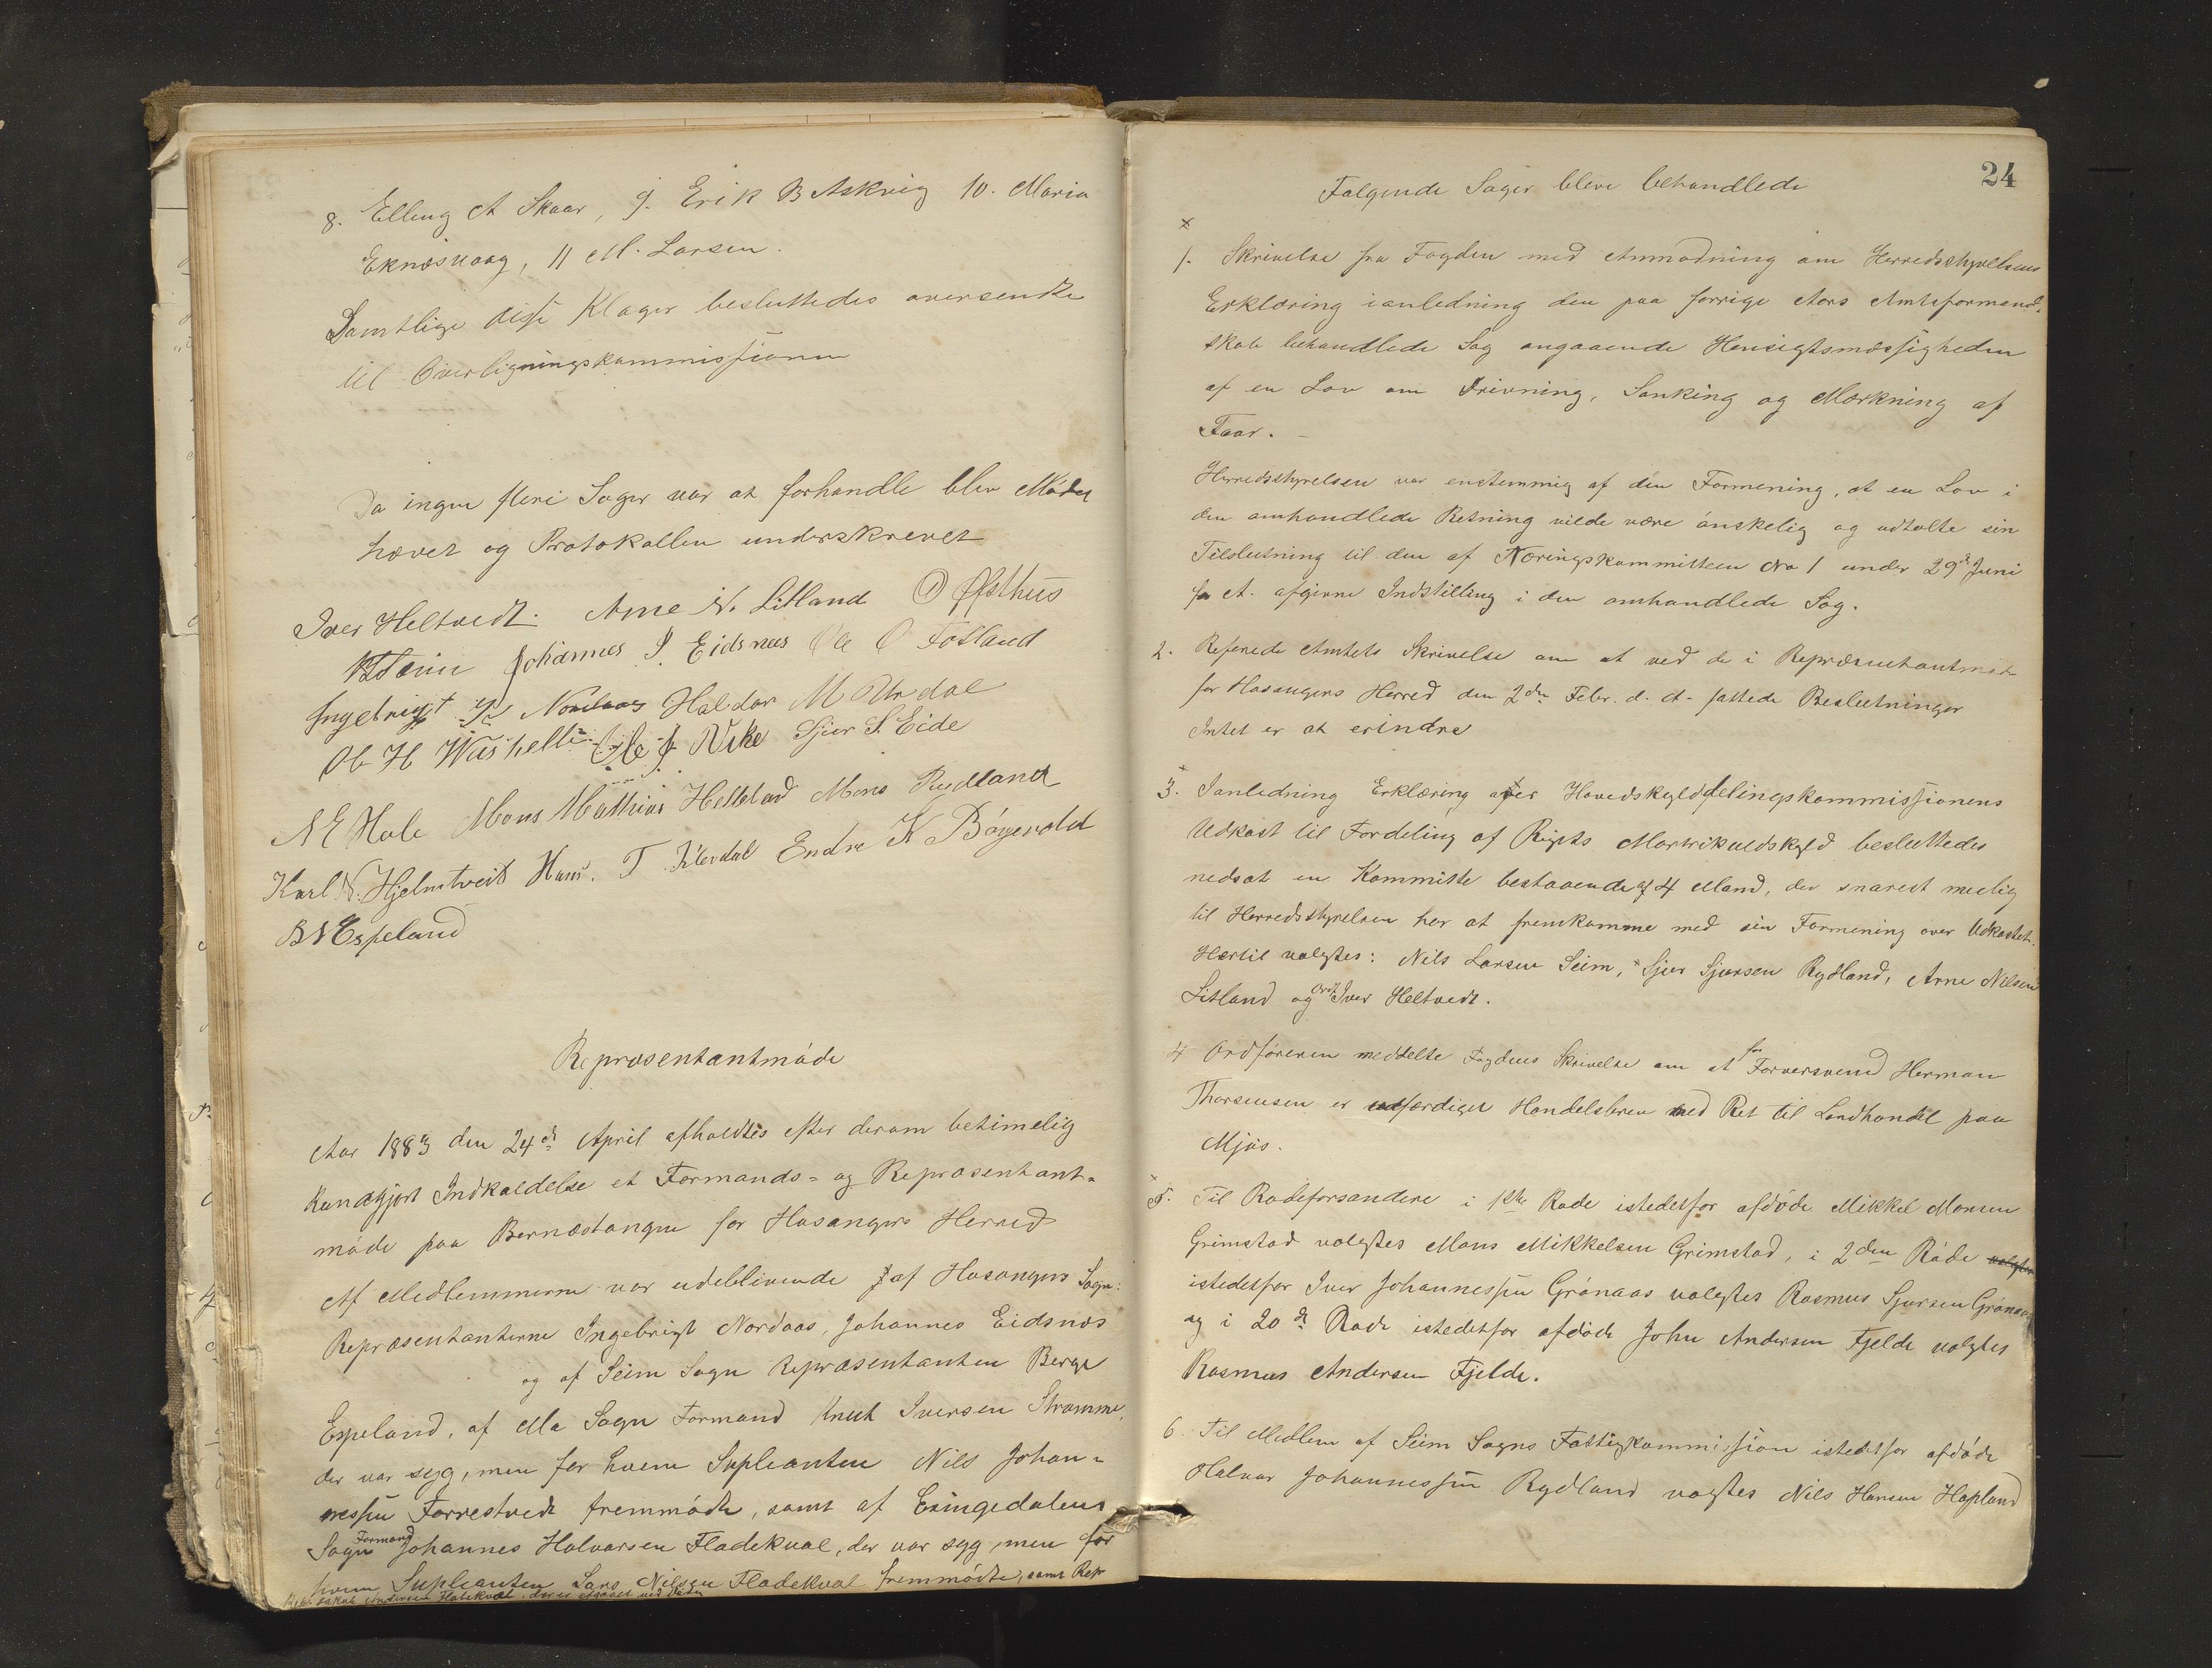 8. Elling A Skaar, 9. Erik B Askvig 10. Maria
Eknæsvaag, 11 M. Larsen.
Samtlige disse Klager besluttedes oversendte
til Overligningskommissionen
Da ingen flere Sager var at forhandle blev Mødet
hævet og Protokollen underskrevet
Iver Heltvedt. Arne N. Litland O Øfsthus
Johannes J. Eidsnes Ole O Fotland
Ingebrigt Nordaas Haldor M Urdal
Ole H Ole J. Rike Sjur S. Eide
N E Hole Mons Mathias Helland Mons Rydland
Karl N. Hjelmtveit Hans. T. Endre K Bøgevold
B N Espeland
Repræsentantmøde
Aar 1883 den 24de April afholdtes efter derom betimelig
kundgjort Indkaldelse et Formands- og Repræsentant-
møde paa Bernæstangen for Hosangers Herred
Af Medlemmerne var udeblivende af Hosangers Sogn:
Repræsentanterne Ingebrigt Nordaas, Johannes Eidsnæs
og af Seim Sogn Repræsentanten Berge
Espeland, af Mo Sogn Formand Knut Iversen Stramme,
der var syg, men for hvem Supleanten Nils Johan-
nessen Forrestvedt fremmødte, samt af Exingedalens
Sogn Formand Johannes Halvorsen Fladekval, der var syg, men for
hvem Supleanten Lars Nilssen Fladekval fremmødte, samt Repr
Jakob Andersen Flatekval, der er afgaaet ved Døden
24
Følgende Sager bleve behandlede
x
1. Skrivelse fra Fogden med Anmodning om Herredsstyrelsens
Erklæring i anledning den paa forrige Aars Amtsformand-
skab behandlede Sag angaaende Hensigtsmæssigheden
af en Lov om Drivning, Sanking og Mærkning af
Faar.
Herredsstyrelsen var enstemmig af den Formening, at en Lov i
den omhandlede Retning vilde være ønskelig og udtalte sin
Tilslutning til den af Næringskommitteen No 1 under 29de Juni
f A. afgivne Indstilling i den omhandlede Sag.
2. Refererede Amtets Skrivelse om at ved de i Repræsentantmøde
for Hosangers Herred den 2den Febr. d. A. fattede Beslutninger
Intet er at erindre
x
3. I anledning Erklæring over Hovedskylddelingskommissionens
Udkast til Fordeling af Rigets Matrikuleskyld besluttedes
nedsat en Kommitte bestaaende af 4 Mand, der snarest mulig
til Herredsstyrelsen har at fremkomme med sin Formening over Udkastet.
Hertil valgtes: Nils Larsen Seim, x Sjur Sjursen Rydland, Arne Nilsen
Litland og Ordf Iver Heltvedt.
4 Ordføreren meddelte Fogdens Skrivelse om at for Farversvend Herman
Thorsensen er udfærdiget Handelsbrev med Ret til Landhandel paa
Mjøs.
x
5. Til Rodeforsandere i 1ste Rode istedetfor afdøde Mikkel Monsen
Grimstad valgtes Mons Mikkelsen Grimstad, i 2den Rode valgtes
istedetfor Iver Johannessen Grønaas valgtes Rasmus Sjursen Grønaas
og i 20de Rode istedetfor afdøde John Andersen Fjelde valgtes
Rasmus Andersen Fjelde.
6 Til Medlem af Seim Sogns Fattigkommission istedetfor afdøde
Halvor Johannessen Rydland valgtes Nils Hansen Hopland